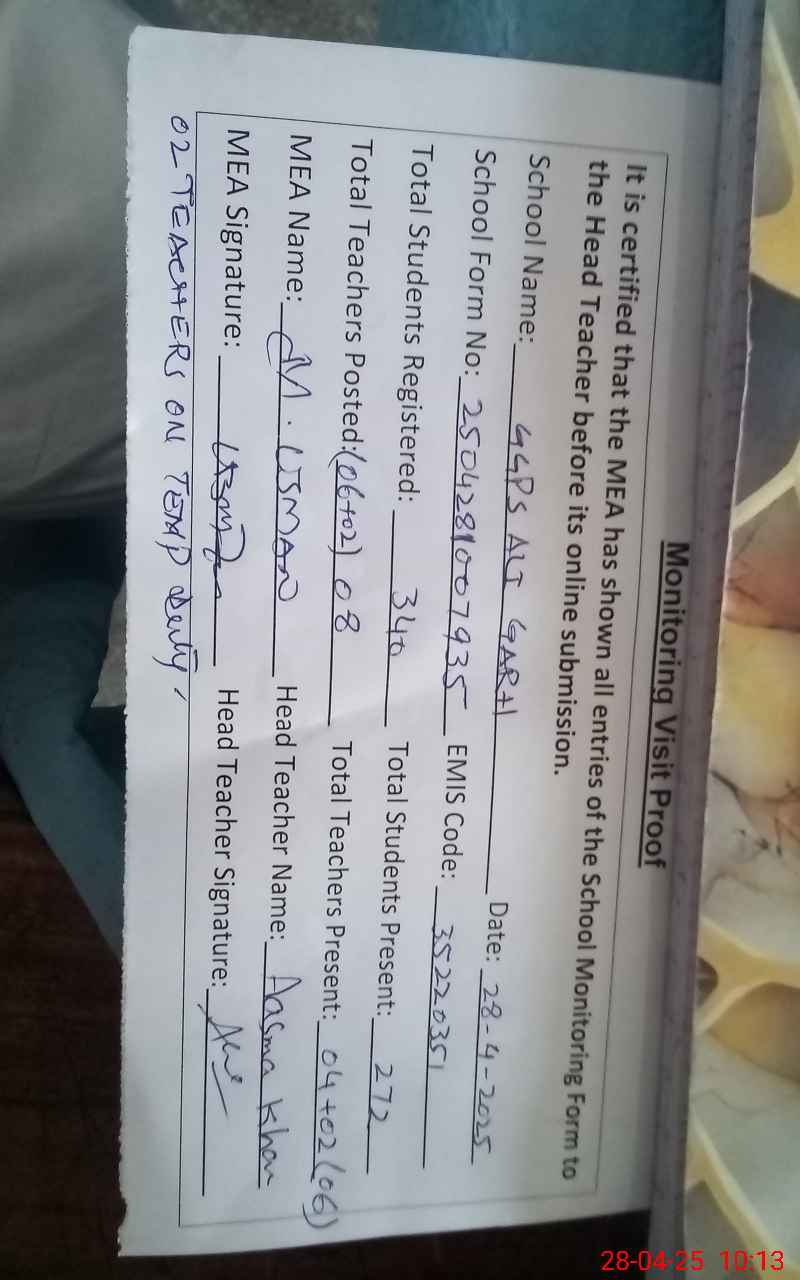 Monitoring Visit Proof
It is certified that the MEA has shown all entries of the School Monitoring Form to
the Head Teacher before its online submission.
School Name: GGPS ALI GARH Date: 28-4-2025
School Form No: 2504281007935 EMIS Code: 35220351
Total Students Registered: 340 Total Students Present: 272
Total Teachers Posted: (06+02) 08 Total Teachers Present: 04+02 (06)
MEA Name: M. USMAN Head Teacher Name: Aasma Khan
MEA Signature: Head Teacher Signature:
02 TEACHERS ON TEMP Duty,
28-04-25 10:13